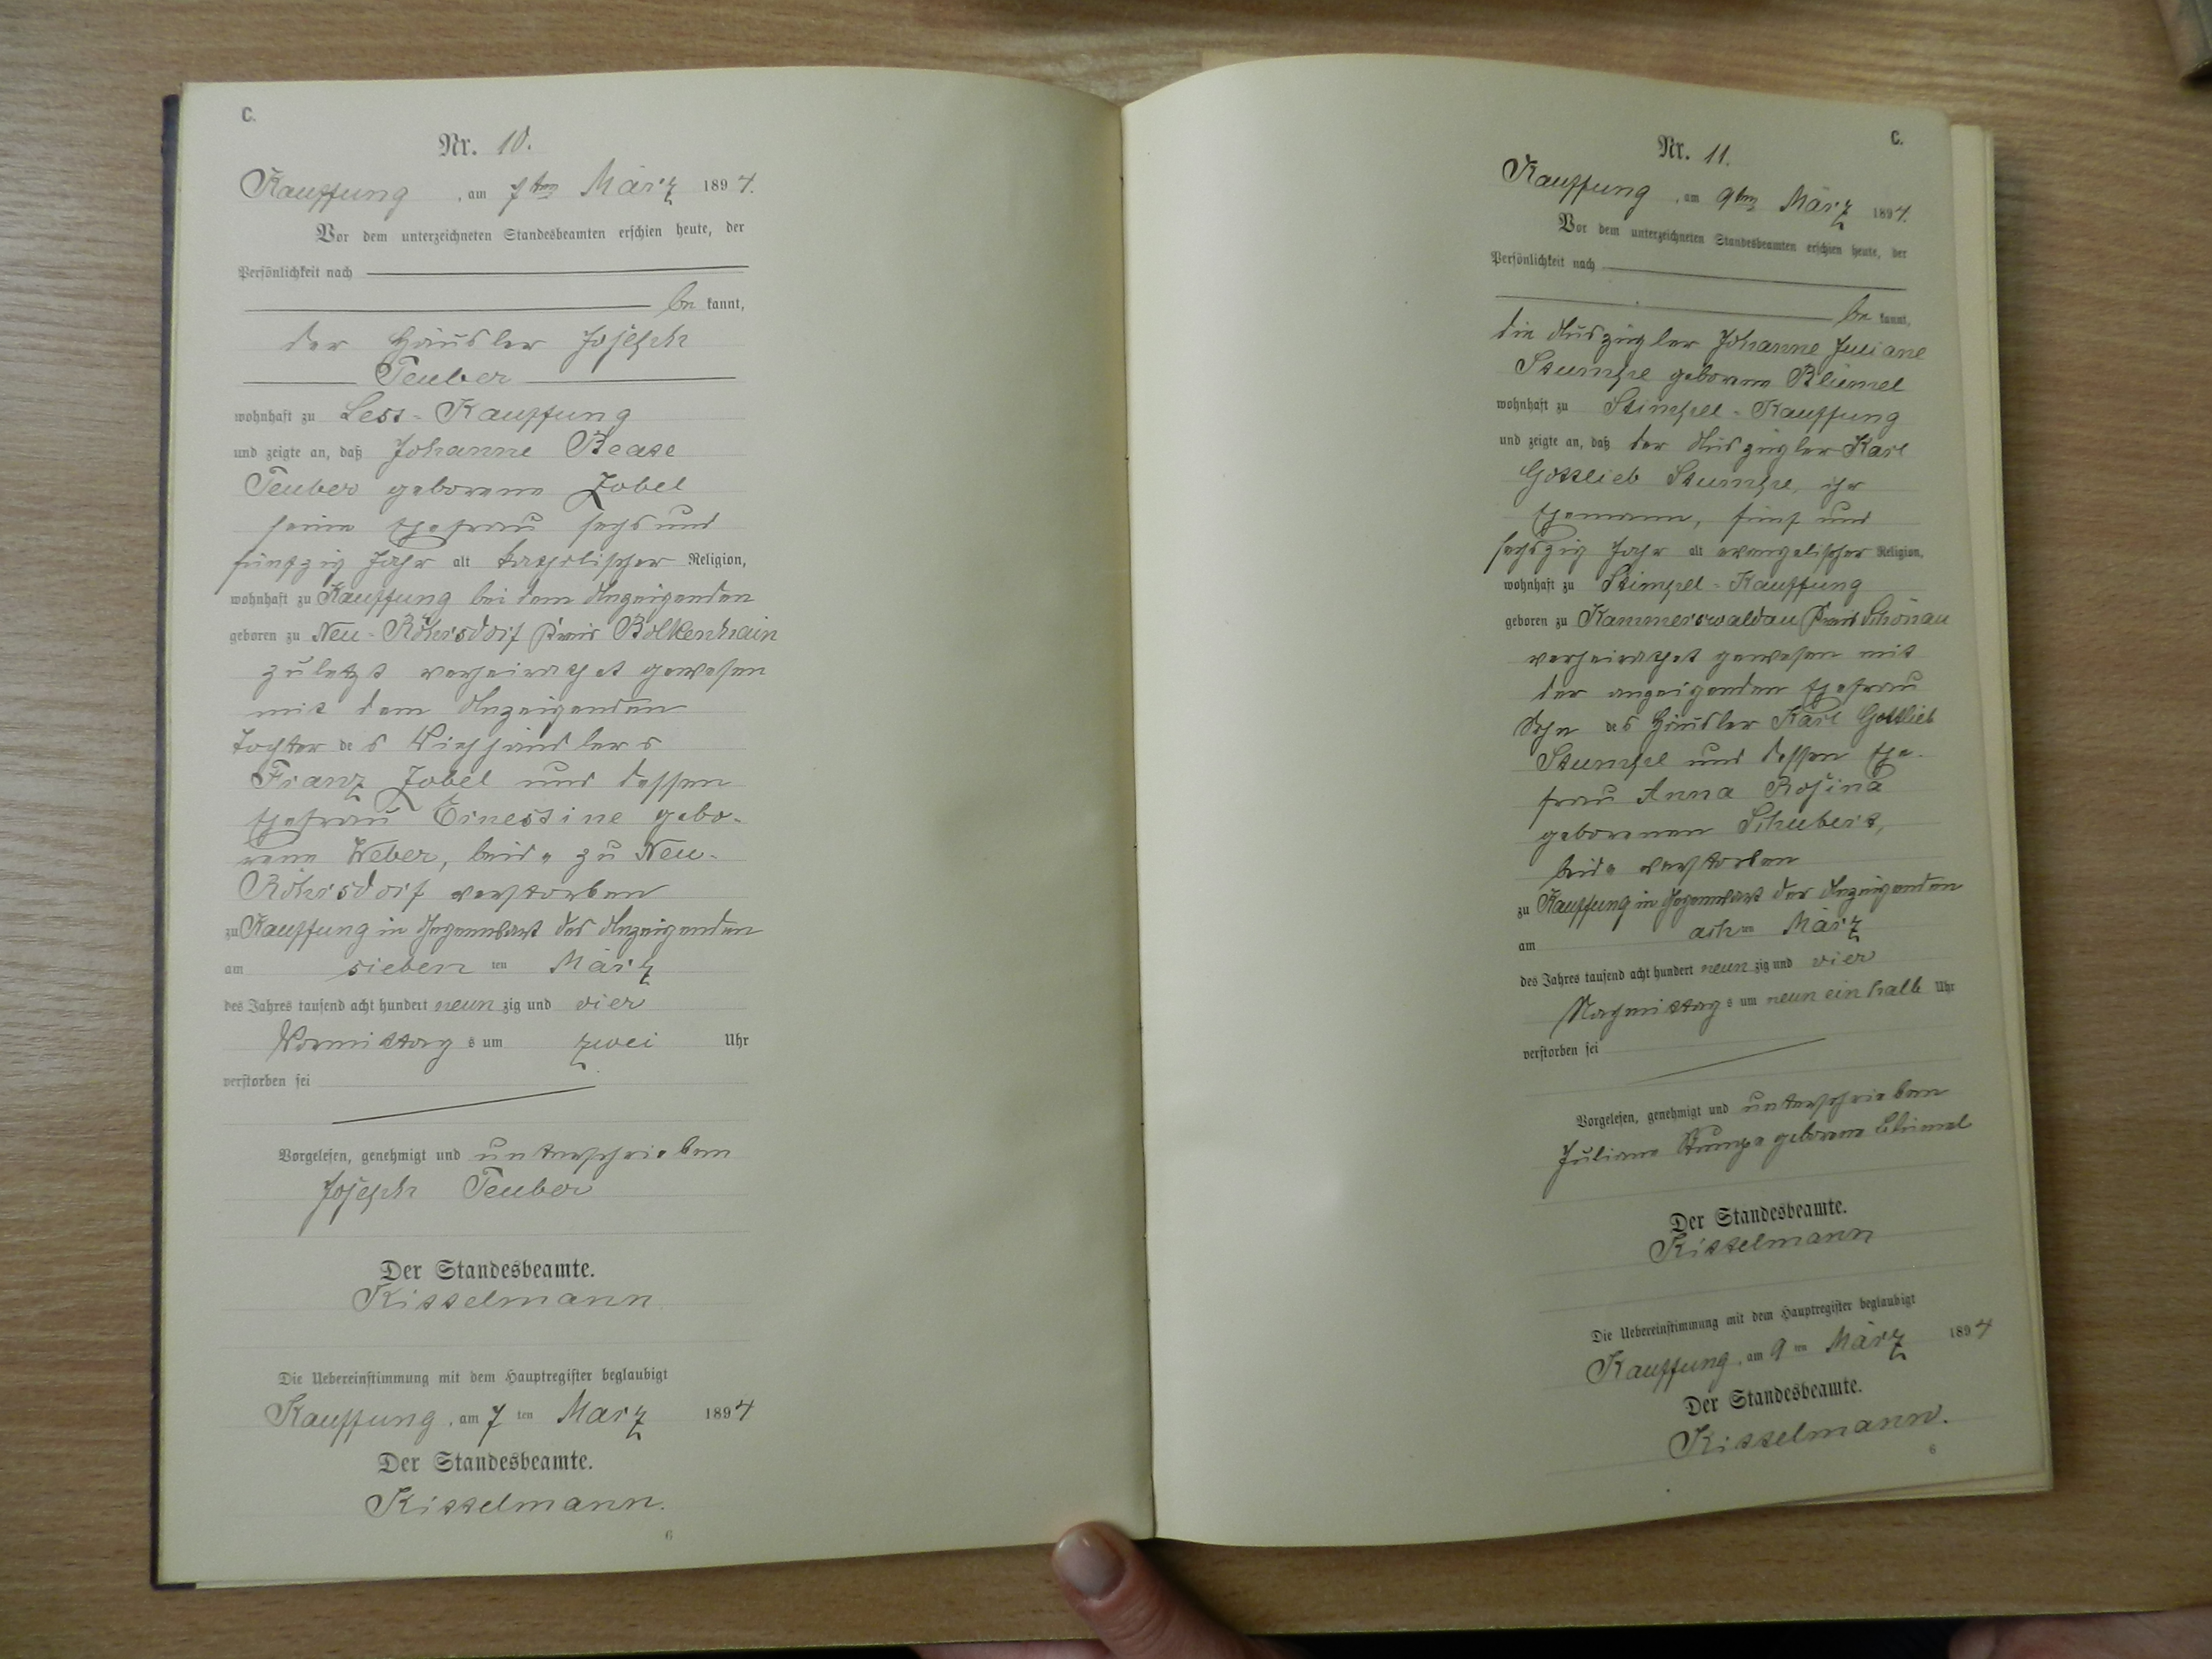 C.
Nr. 10.
Kauffung, am 7ten März 1894.
Vor dem unterzeichneten Standesbeamten erschien heute, der
Persönlichkeit nach
be kannt,
der Häusler Joseph
Teuber
wohnhaft zu Lest-Kauffung
und zeigte an, daß Johanne Beate
Teuber geborene Zobel
seine Ehefrau sechs und
fünfzig Jahr alt katholischer Religion,
wohnhaft zu Kauffung bei dem Anzeigenden
geboren zu Neu-Röhrsdorf Kreis Bolkenhain
zuletzt verheirathet gewesen
mit dem Anzeigenden
Tochter des Viehhändlers
Franz Zobel und dessen
Ehefrau Ernestine gebo-
rene Weber, beide zu Neu-
Röhrsdorf verstorben
zu Kauffung in Gegenwart des Anzeigenden
am sieben ten März
des Jahres tausend acht hundert neun zig und vier
Vormittag s um zwei Uhr
verstorben sei
Vorgelesen, genehmigt und unterschrieben
Joseph Teuber
Der Standesbeamte.
Kittelmann
Die Uebereinstimmung mit dem Hauptregister beglaubigt
Kauffung, am 7 ten März 1894
Der Standesbeamte.
Kittelmann.
6
C.
Nr. 11.
Kauffung, am 9ten März 1894.
Vor dem unterzeichneten Standesbeamten erschien heute, der
Persönlichkeit nach
be kannt,
die Auszügler Johanne Juliane
Stumpe geborene Blümel
wohnhaft zu Stimpel-Kauffung
und zeigte an, daß der Auszügler Karl
Gottlieb Stumpe, ihr
Ehemann, fünf und
sechszig Jahr alt evangelischer Religion,
wohnhaft zu Stimpel-Kauffung
geboren zu Kammerswaldau Kreis Schönau
verheirathet gewesen mit
der anzeigenden Ehefrau
Sohn des Häusler Karl Gottlieb
Stumpe und dessen Ehe-
frau Anna Rosina
geborenen Schubert,
beide verstorben
zu Kauffung in Gegenwart der Anzeigenden
am acht ten März
des Jahres tausend acht hundert neun zig und vier
Nachmittag s um neun ein halb Uhr
verstorben sei
Vorgelesen, genehmigt und unterschrieben
Juliane Stumpe geborene Blümel
Der Standesbeamte.
Kittelmann
Die Uebereinstimmung mit dem Hauptregister beglaubigt
Kauffung, am 9 ten März 1894
Der Standesbeamte.
Kittelmann.
6